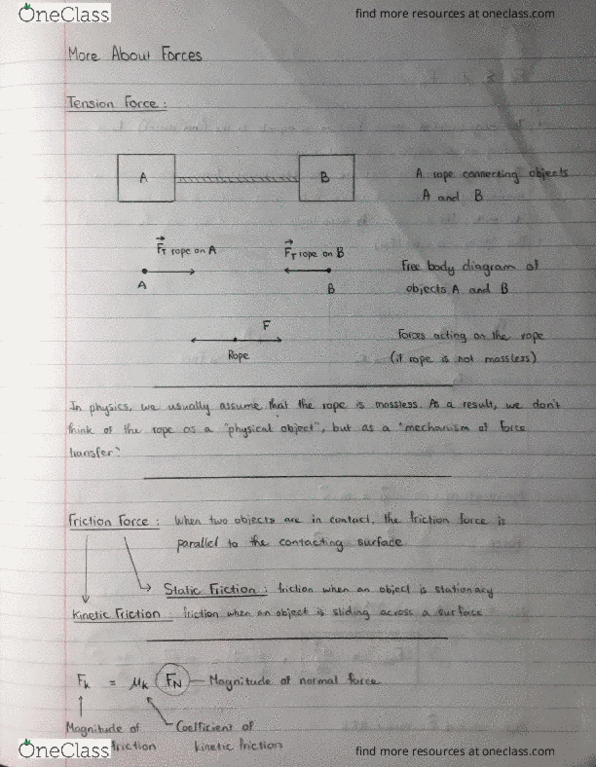 OneClass
find more resources at oneclass.com
More About Forces
Tension Force:
A
B
A rope connecting objects
A and B
F⃗T rope on A
F⃗T rope on B
A
B
Free body diagram of
objects A and B
F
Rope
Forces acting on the rope
(if rope is not massless)
In physics, we usually assume that the rope is massless. As a result, we don't
think of the rope as a "physical object", but as a "mechanism of force
transfer"
Friction Force: When two objects are in contact, the friction force is
parallel to the contacting surface
Static Friction: friction when an object is stationary
Kinetic Friction: friction when an object is sliding across a surface
Fk = μk FN Magnitude of normal force
Magnitude of
friction
Coefficient of
kinetic friction
OneClass
find more resources at oneclass.com